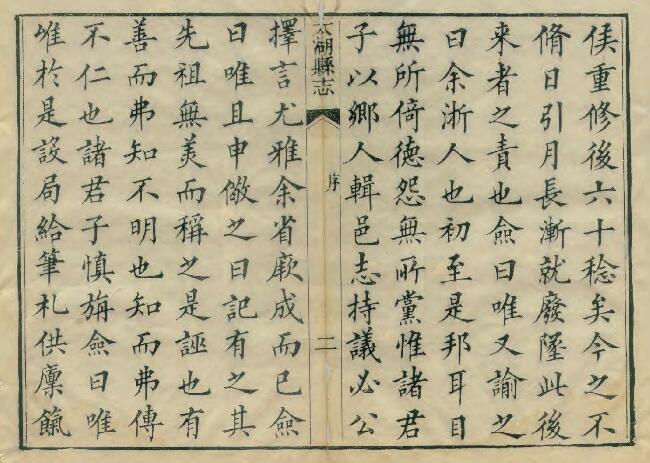 侯重修後六十稔矣今之不
脩日引月長漸就廢墜此後
来者之責也僉曰唯又諭之
曰余浙人也初至是邦耳目
無所倚徳怨無所黨惟諸君
子以鄉人輯邑志持議必公
太湖縣志
序
二
擇言尤雅余省厥成而已僉
曰唯且申儆之曰記有之其
先祖無美而稱之是誣也有
善而弗知不明也知而弗傳
不仁也諸君子慎旃僉曰唯
唯於是設局給筆札供廩餼